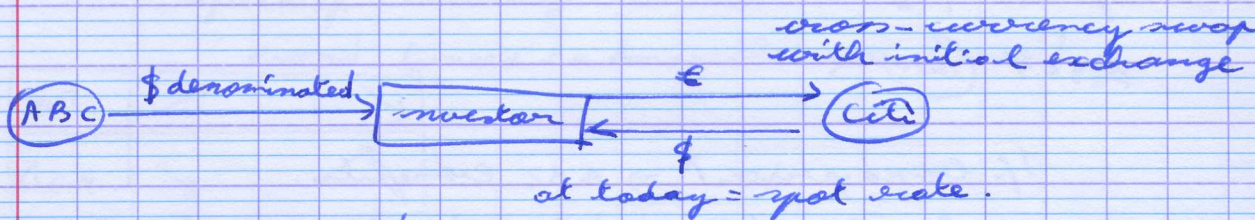 cross-currency swap
with initial exchange
$ denominated
€
ABC
investor
Citi
$
at today = spot rate.